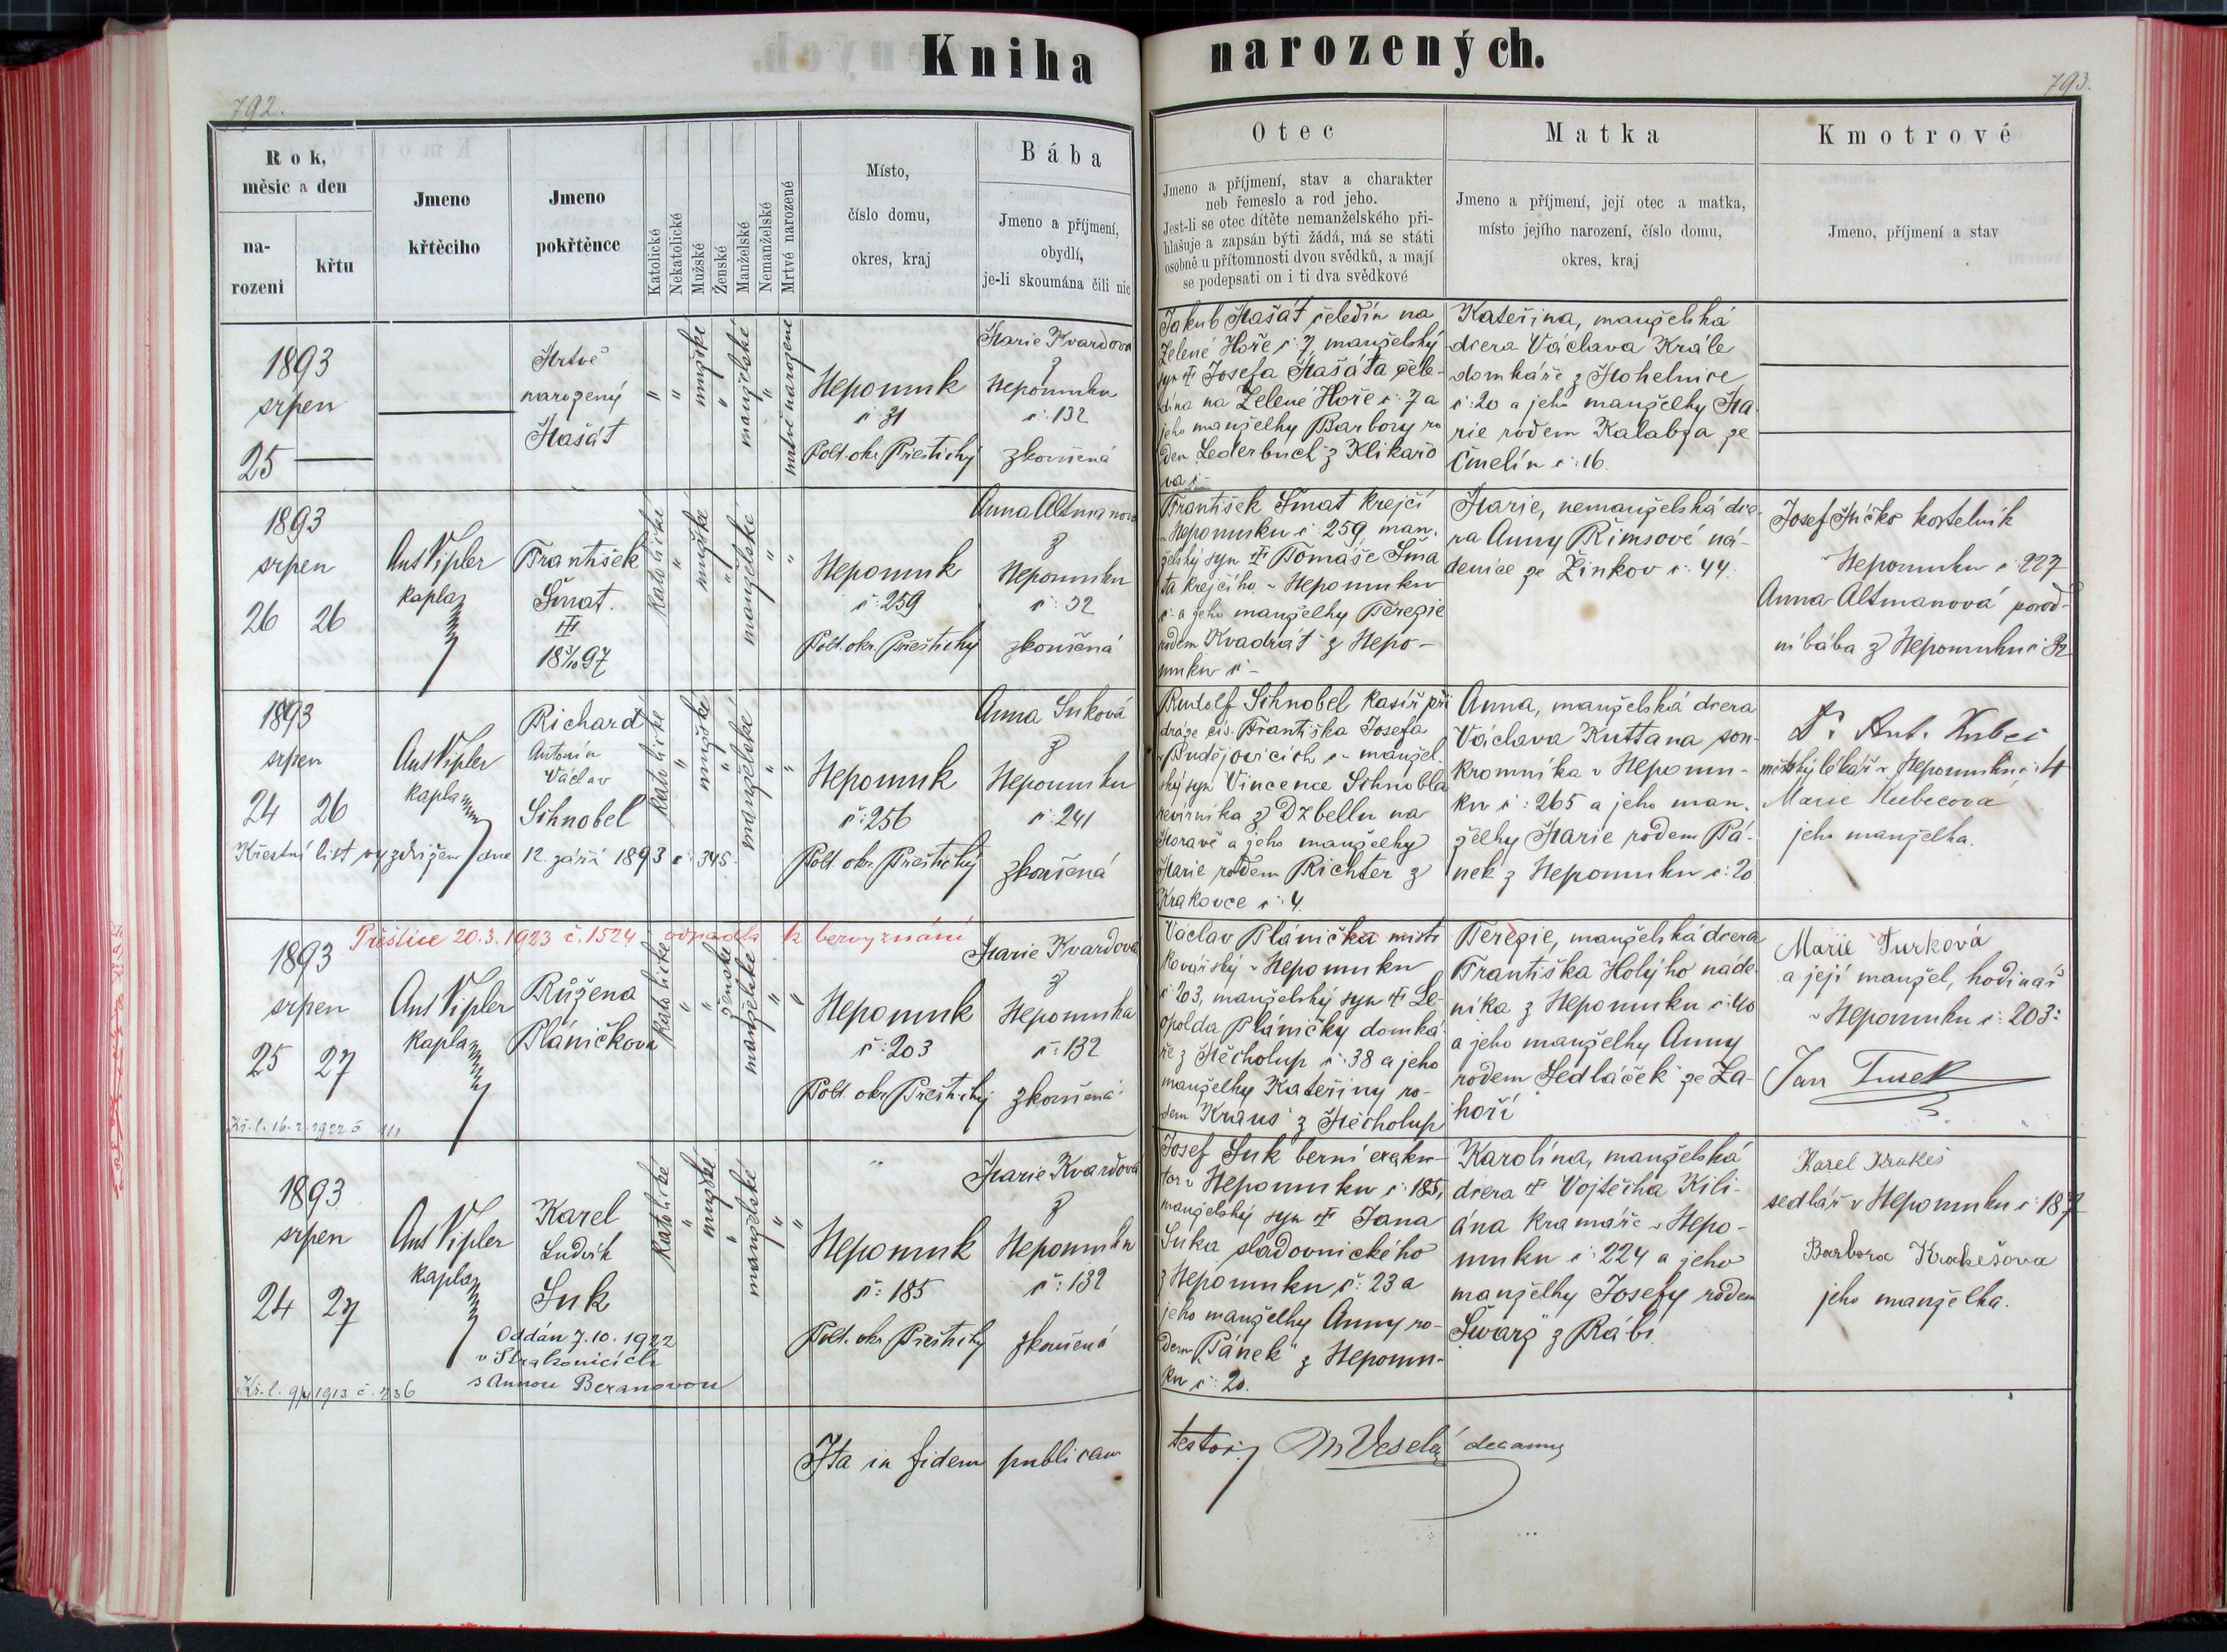 Kniha narozených.
792.
793.
Rok, měsíc a den
narození
křtu
Jmeno křtěcího
Jmeno pokřtěnce
Katolické
Nekatolické
Mužské
Ženské
Manželské
Nemanželské
Mrtvé narozené
Místo,
číslo domu,
okres, kraj
Bába
Jmeno a příjmení,
obydlí,
je-li skoumána čili nic
Otec
Jmeno a příjmení, stav a charakter
neb řemeslo a rod jeho.
Jest-li se otec dítěte nemanželského při-
hlašuje a zapsán býti žádá, má se státi
osobně u přítomnosti dvou svědků, a mají
se podepsati on i ti dva svědkové
Matka
Jmeno a příjmení, její otec a matka,
místo jejího narození, číslo domu,
okres, kraj
Kmotrové
Jmeno, příjmení a stav
1893
srpen
25
Mrtvě
narozený
Mašát
"
"
mužské
"
manželské
"
mrtvě narozené
Nepomuk
č: 31
Polit. okr. Přeštický
Marie Kvardova
z
Nepomuku
č: 132
zkoušená
Jakub Mašát čeledín na
Zelené Hoře č: 7, manželský
syn † Josefa Mašáta čele-
dína na Zelené Hoře č: 7 a
jeho manželky Barbory ro
dem Lederbuch z Klikařo
va č -
Kateřina, manželská
dcera Václava Krále
domkáře z Mohelnice
č: 20 a jeho manželky Ma
rie rodem Kalabza ze
Čmelín č: 16.
1893
srpen
26 26
Ant Vipler
kaplan
František
Šmat.
†
18 3/10 97
katolické
"
mužské
"
manželské
"
"
Nepomuk
č: 259
Polit. okr. Přeštický
Anna Altmanova
z
Nepomuku
č: 32
zkoušená
František Šmat krejčí
v Nepomuku č: 259, man-
želský syn † Tomáše Šma
ta krejčího v Nepomuku
č - a jeho manželky Terezie
rodem Kvadrát z Nepo-
muku č -
Marie, nemanželská dce-
ra Anny Římsové ná-
denice ze Žinkov č: 44.
Josef Mičko kostelník
v Nepomuku č: 227
Anna Altmanová porod-
ní bába z Nepomuku č 32
1893
srpen
24 26
Ant Vipler
kaplan
Richard
Antonín
Václav
Schnobel
Křestní list vyzdvižen dne 12. září 1893 č: 345.
katolické
"
mužské
"
manželské
"
"
Nepomuk
č: 256
Polit. okr. Přeštický
Anna Suková
z
Nepomuku
č: 241
zkoušená
Rudolf Schnobel kasíř při
dráze cís. Františka Josefa
v Budějovicích č - manžel-
ský syn Vincence Schnobla
revírníka z Dzbellu na
Moravě a jeho manželky
Marie rodem Richter z
Krakovce č: 4.
Anna, manželská dcera
Václava Kuttana sou-
kromníka v Nepomu-
ku č: 265 a jeho man-
želky Marie rodem Pá-
nek z Nepomuku č: 20
Dr. Ant. Kubec
městský lékař v Nepomuku č: 4
Marie Kubecova
jeho manželka.
Přeštice 20.3.1923 č. 1524 odpadla k bezvyznání
1893
srpen
25 27
Ant Vipler
kaplan
Růžena
Pláničkova
Kř. l. 16. 2. 1922 č 111
katolické
"
"
ženské
manželské
"
"
Nepomuk
č: 203
Polit. okr. Přeštický
Marie Kvardova
z
Nepomuka
č: 132
zkoušená
Václav Plánička mistr
kovářský v Nepomuku
č: 203, manželský syn † Le-
opolda Pláničky domká
ře z Měcholup č: 38 a jeho
manželky Kateřiny ro-
dem Kraus z Měcholup
Terezie, manželská dcera
Františka Holýho náde-
níka z Nepomuku č: 40
a jeho manželky Anny
rodem Sedláček ze Zá-
hoří
Marie Turková
a její manžel, hodinář
v Nepomuku č: 203:
Jan Turek
1893
srpen
24 27
Ant Vipler
kaplan
Karel
Ludvík
Suk
Oddán 7.10.1922
v Strakonicích
s Annou Beranovou
Kř. l. 9/4 1913 č. 236
katolické
"
mužské
"
manželské
"
"
Nepomuk
č: 185
Polit. okr. Přeštický
Marie Kvardova
z
Nepomuku
č: 132
zkoušená
Josef Suk berní exeku-
tor v Nepomuku č: 185,
manželský syn † Jana
Suka sladovnického
z Nepomuku č: 23 a
jeho manželky Anny ro-
dem "Pánek" z Nepomu-
ku č: 20.
Karolína, manželská
dcera † Vojtěcha Kili-
ána kramáře v Nepo-
muku č: 224 a jeho
manželky Josefy rodem
"Švarz" z Rábí
Karel Krakeš
sedlář v Nepomuku č: 187
Barbora Krakešova
jeho manželka.
Ita in fidem publicam testor. M Veselý decanus